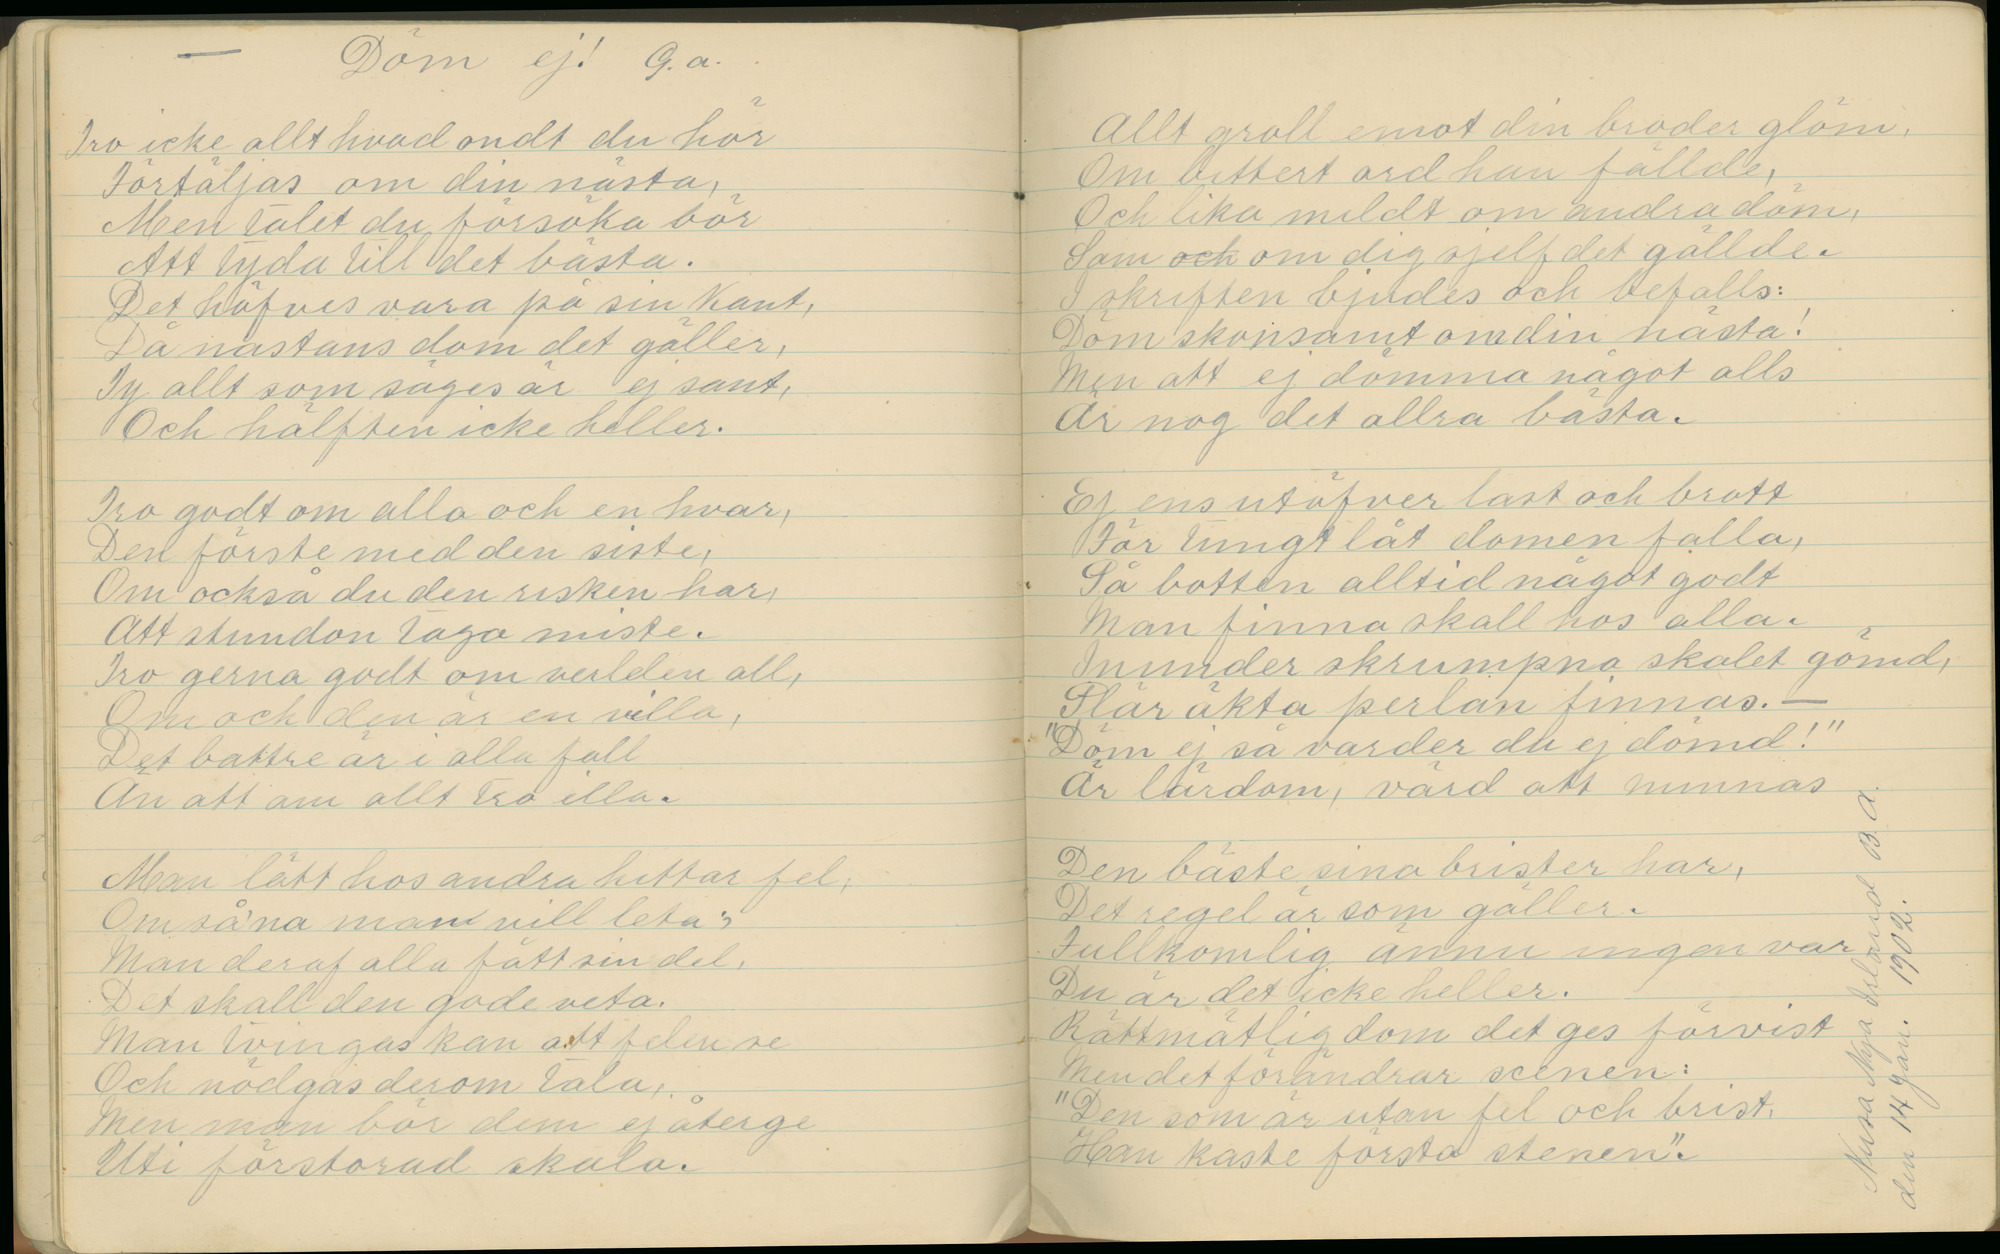 — Döm ej! G. a.
Tro icke allt hvad ondt du hör
Förtäljas om din nästa,
Men talet du försöka bör
Att tyda till det bästa.
Det höfves vara på sin kant,
Då nästans dom det gäller,
Ty allt som säges är ej sant,
Och hälften icke heller.
Tro godt om alla och en hvar,
Den förste med den siste,
Om också du den risken har,
Att stundon taga miste.
Tro gerna godt om verlden all,
Om och den är en villa,
Det battre är i alla fall
Än att om allt tro illa.
Man lätt hos andra hittar fel,
Om så'na man vill leta;
Man deraf alla fått sin del,
Det skall den gode veta.
Man tvingas kan att felen se
Och nödgas derom tala,
Men man bör dem ej återge
Uti förstorad skala.
Allt groll emot din broder glöm,
Om bittert ord han fällde,
Och lika mildt om andra döm,
Som och om dig sjelf det gällde.
I skriften bjudes och befalls:
Döm skonsamt om din nästa!
Men att ej dömma något alls
Är nog det allra bästa.
Ej ens utöfver last och brott
För tungt låt domen falla,
På botten alltid något godt
Man finna skall hos alla.
Inunder skrumpna skalet gömd,
Plär äkta perlan finnas. —
"Döm ej så varder du ej dömd!"
Är lärdom, värd att minnas
Den bäste sina brister har,
Det regel är som gäller.
Fullkomlig ännu ingen var
Du är det icke heller.
Rättmätlig dom det ges förvist
Men det förändrar scenen:
"Den som är utan fel och brist,
Han kaste första stenen".
Nya Irland B. A.
den 14 Jan. 1902.